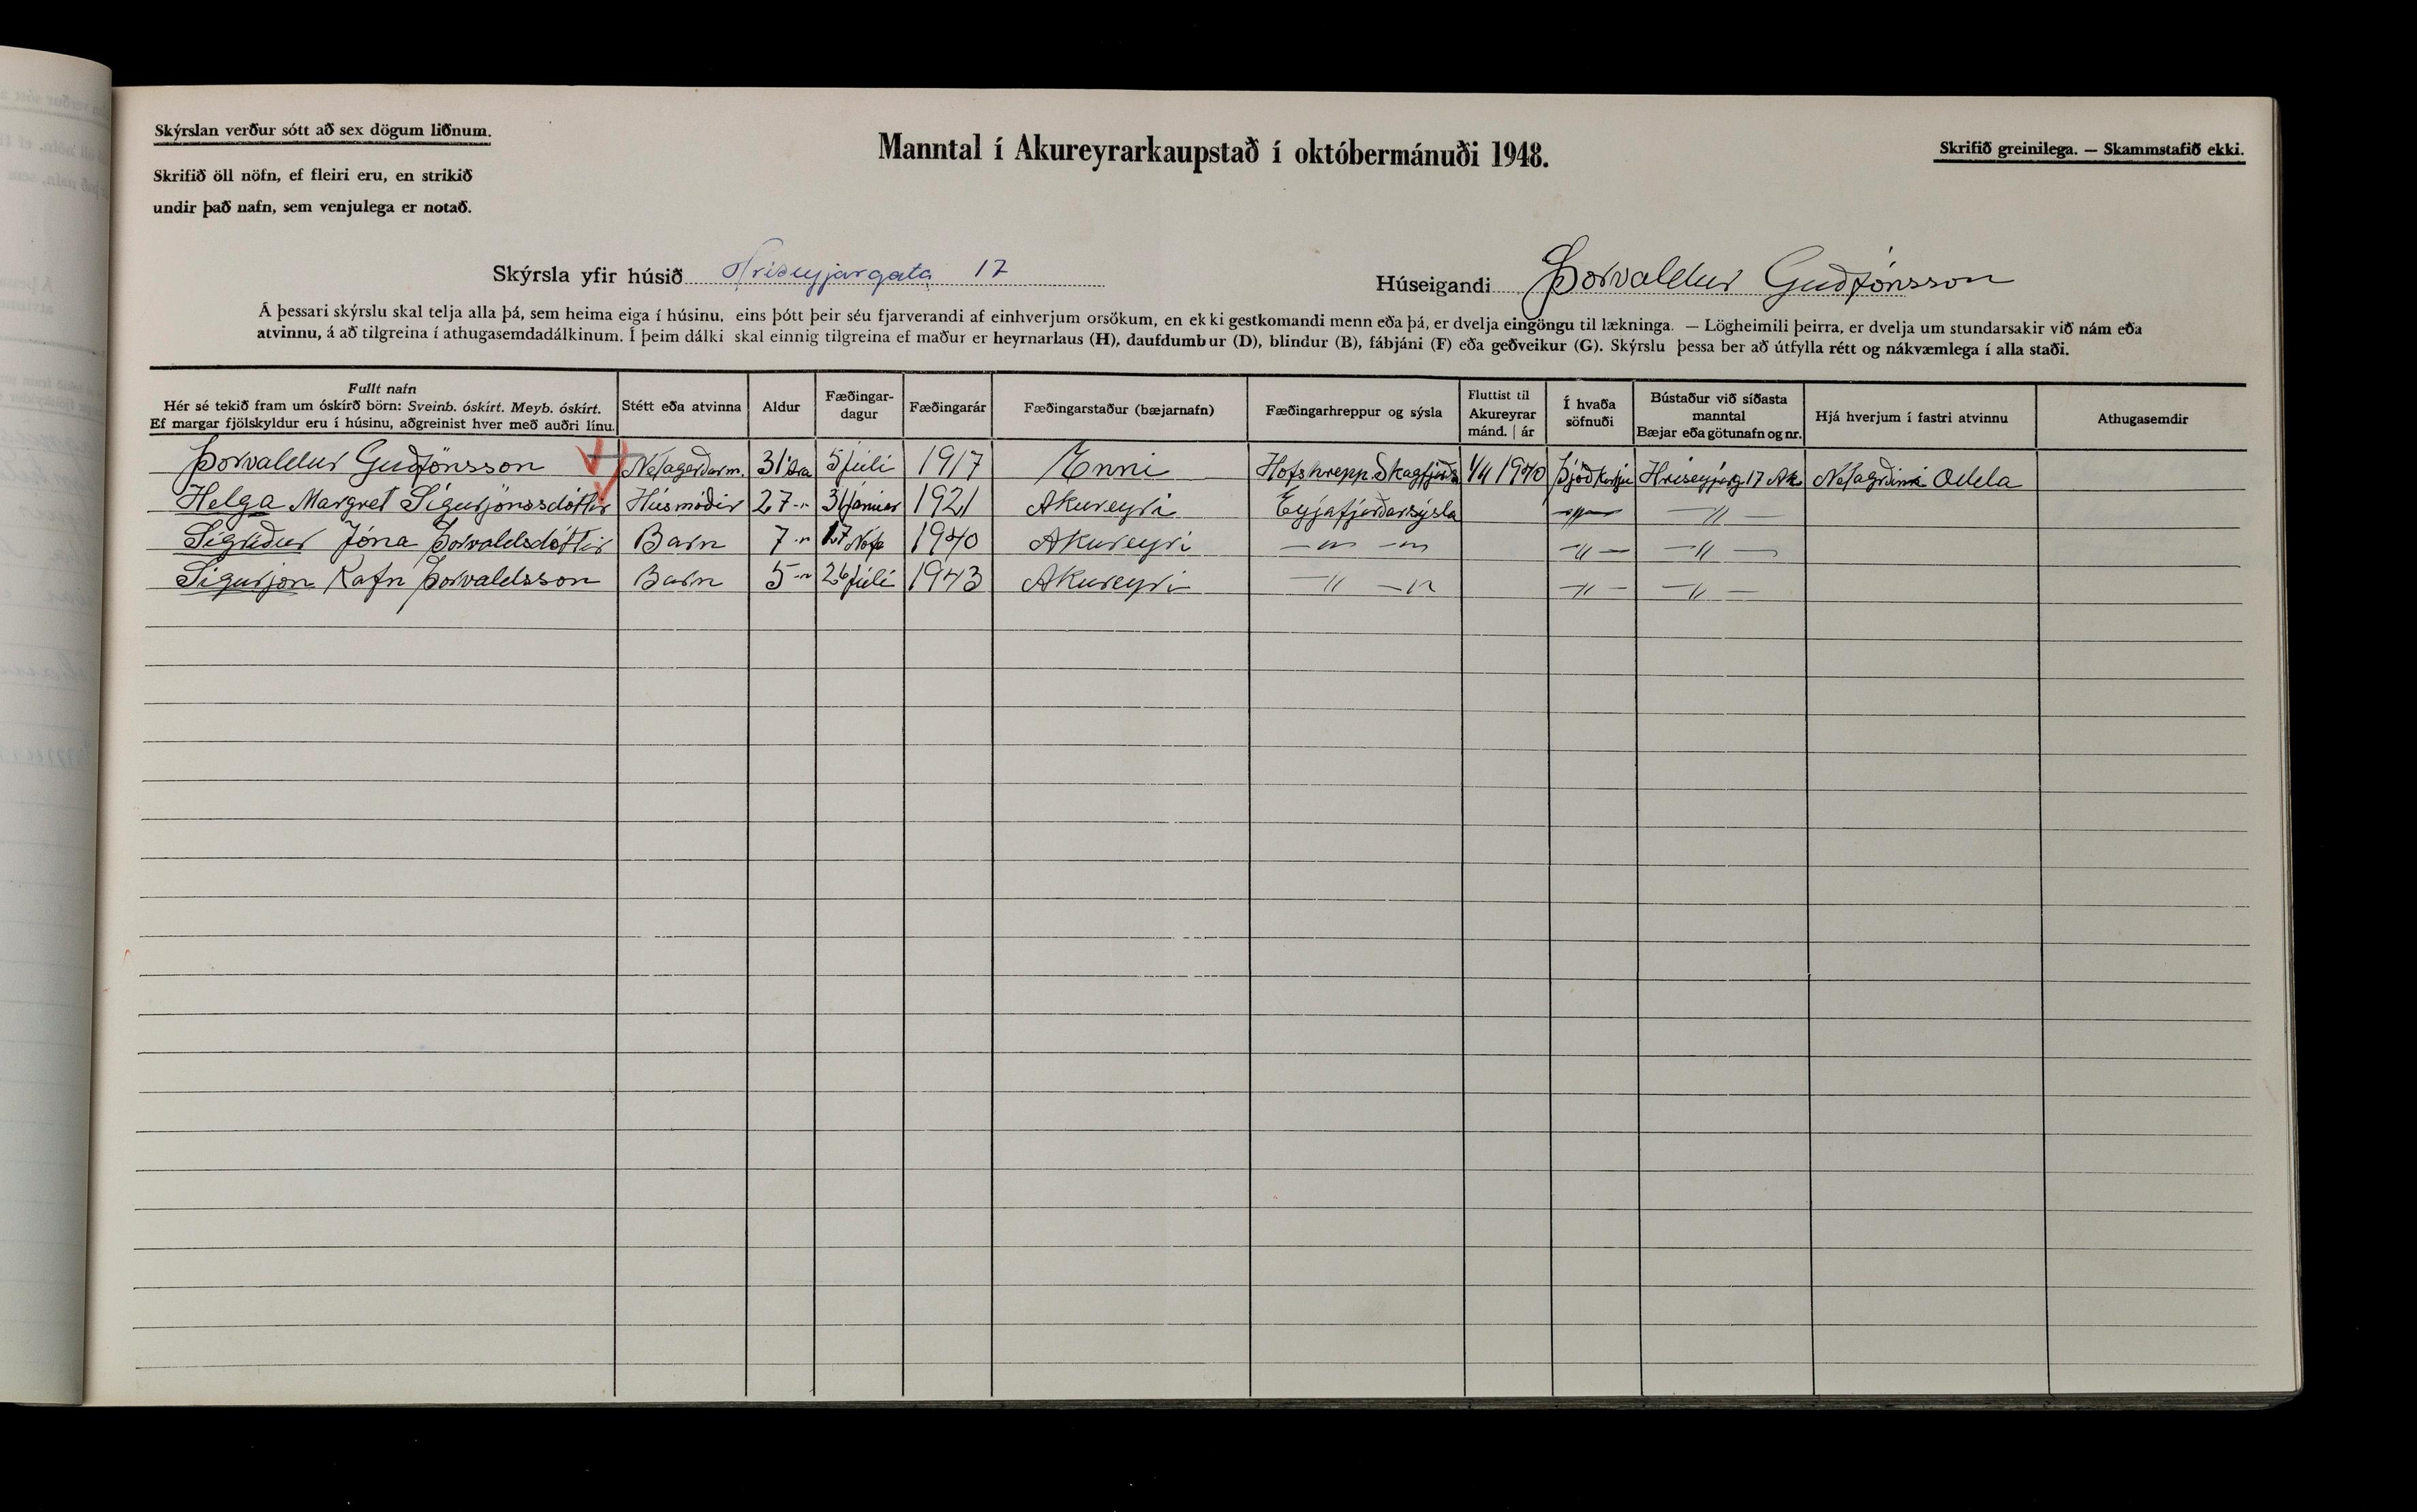 Skýrslan verður sótt að sex dögum liðnum.
Skrifið öll nöfn, ef fleiri eru, en strikið
undir það nafn, sem venjulega er notað.
Manntal í Akureyrarkaupstað í októbermánuði 1948.
Skrifið greinilega. — Skammstafið ekki.
Skýrsla yfir húsið Hríseyjargata 17
Húseigandi Þorvaldur Guðjónsson
Á þessari skýrslu skal telja alla þá, sem heima eiga í húsinu, eins þótt þeir séu fjarverandi af einhverjum orsökum, en ekki gestkomandi menn eða þá, er dvelja eingöngu til lækninga. — Lögheimili þeirra, er dvelja um stundarsakir við nám eða
atvinnu, á að tilgreina í athugasemdadálkinum. Í þeim dálki skal einnig tilgreina ef maður er heyrnarlaus (H), daufdumbur (D), blindur (B), fábjáni (F) eða geðveikur (G). Skýrslu þessa ber að útfylla rétt og nákvæmlega í alla staði.
Fullt nafn
Hér sé tekið fram um óskírð börn: Sveinb. óskírt. Meyb. óskírt.
Ef margar fjölskyldur eru í húsinu, aðgreinist hver með auðri línu.
Stétt eða atvinna
Aldur
Fæðingar-
dagur
Fæðingarár
Fæðingarstaður (bæjarnafn)
Fæðingarhreppur og sýsla
Fluttist til
Akureyrar
mánd. | ár
Í hvaða
söfnuði
Bústaður við síðasta
manntal
Bæjar eða götunafn og nr.
Hjá hverjum í fastri atvinnu
Athugasemdir
Þorvaldur Guðjónsson Netagerðarm. 31 ára 5 júlí 1917 Enni Hofshrepp. Skagfjurðs 1/4 1940 Þjóðkirkju Hríseyjarg 17 Ak. Netagrðinni Odda
Helga Margret Sigurjónssdóttir Húsmóðir 27 -"- 31 janúar 1921 Akureyri Eyjafjarðarsýsla -"- -"-
Sigríður Jóna Þorvaldsdóttir Barn 7 -"- 17 Nófe 1940 Akureyri -"- -"- -"- -"-
Sigurjon Rafn Þorvaldsson Barn 5 -"- 26 júlí 1943 Akureyri -"- -"- -"- -"-